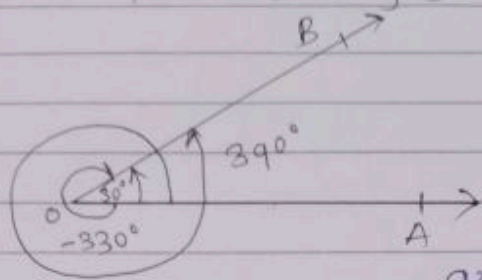 B
390°
30°
O
-330°
A